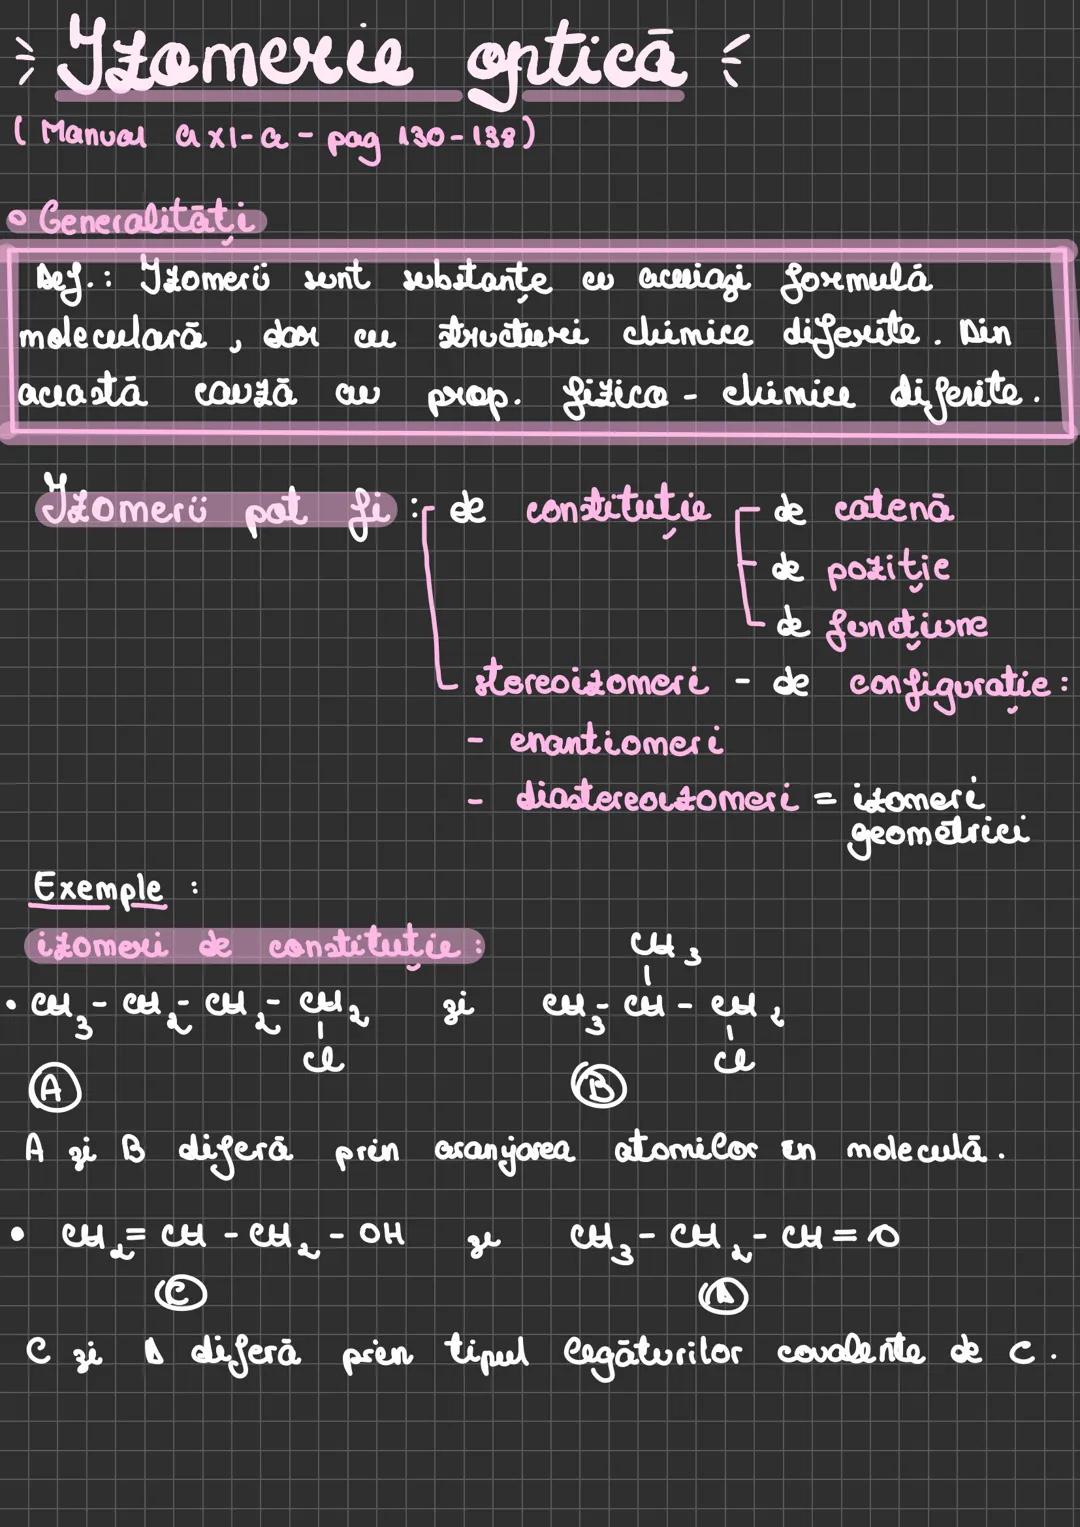 Izomerie optică
(Manual a XI-a - pag 130-138)
• Generalități
Def.: Izomerii sunt substanțe cu aceeași formulă
moleculară, dar cu structuri chimice diferite. Din
această cauză au prop. fizico-chimice diferite.
Izomerii pot fi: de constituție - de catenă
- de poziție
- de funcțiune
stereoizomeri - de configurație:
- enantiomeri
- diastereoizomeri = izomeri
geometrici
Exemple:
izomeri de constituție:
CH3
• CH3 - CH2 - CH2 - CH2 și CH3 - CH - CH2
Cl Cl
A B
A și B diferă prin aranjarea atomilor în moleculă.
• CH2 = CH - CH2 - OH și CH3 - CH2 - CH = O
C D
C și D diferă prin tipul legăturilor covalente de C.